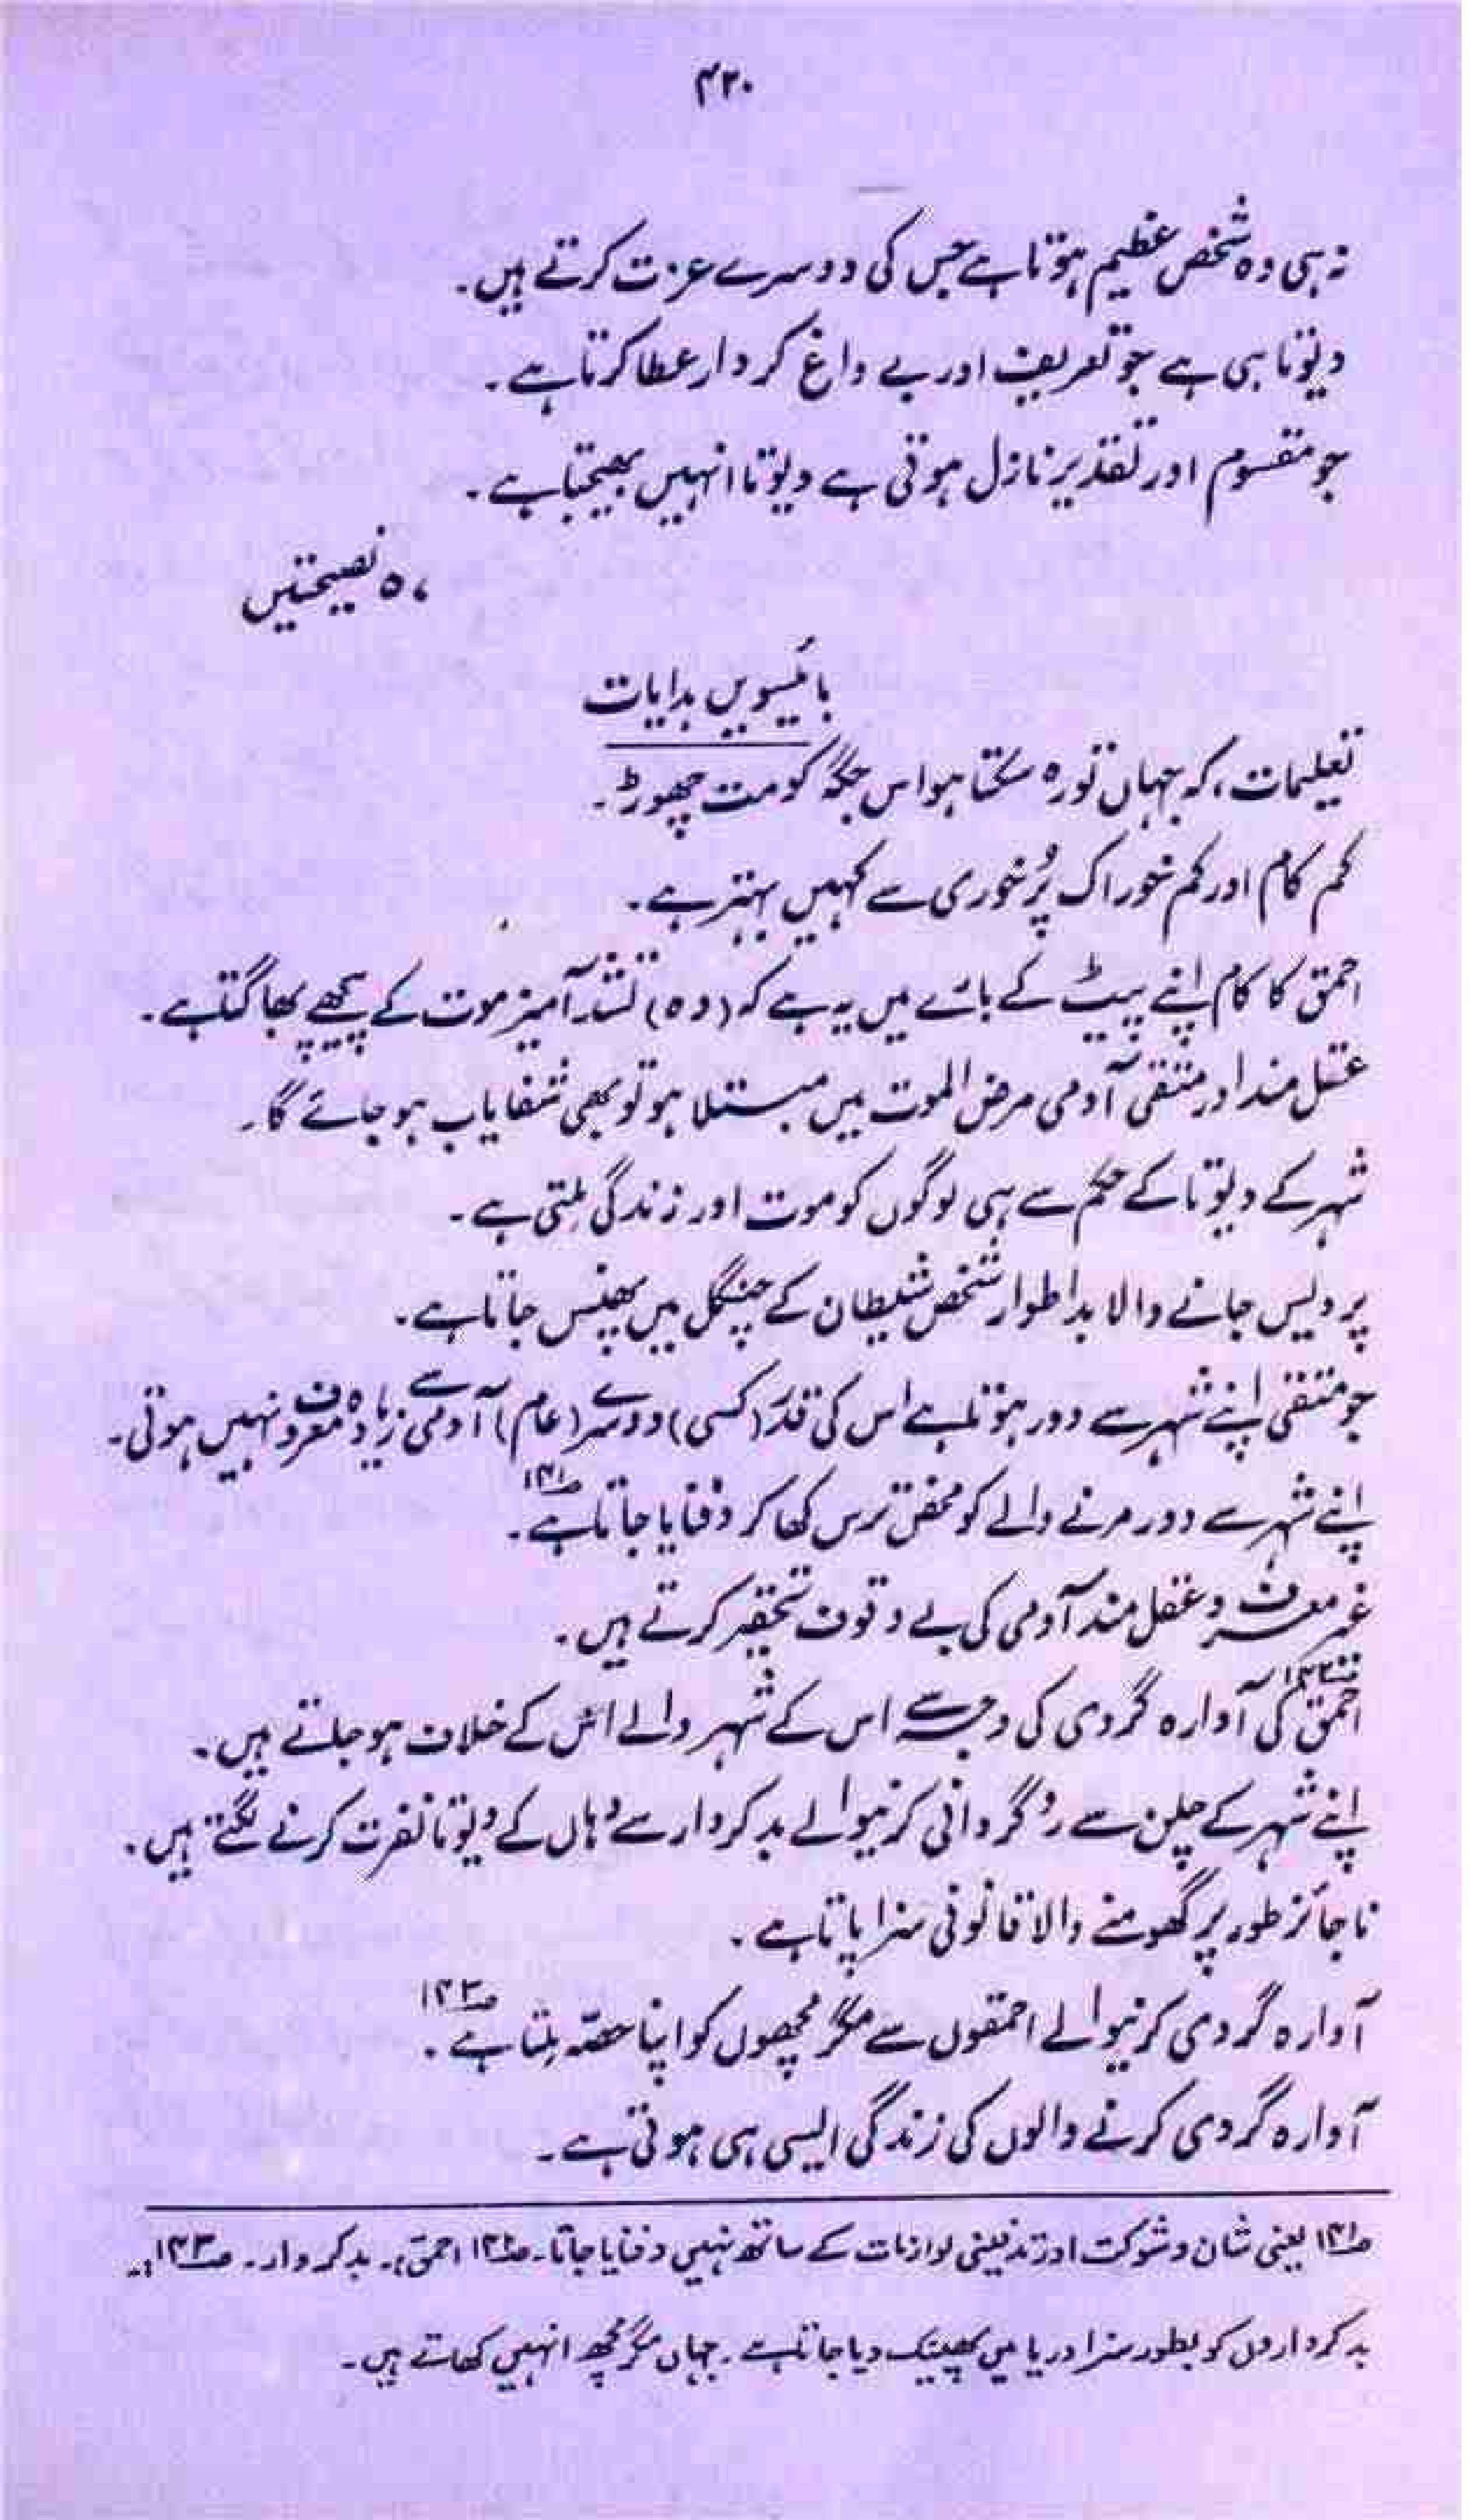 ۴۲۰
نہ ہی وہ شخص عظیم ہوتا ہے جس کی دوسرے عزت کرتے ہیں۔
دیوتا ہی ہے جو تعریف اور بے داغ کردار عطا کرتا ہے۔
جو مقسوم اور تقدیر نازل ہوتی ہے دیوتا انہیں بھیجتا ہے۔
، ۵ نصیحتیں
بائیسویں ہدایات
تعلیمات، کہ جہاں تو رہ سکتا ہو اس جگہ کو مت چھوڑ۔
کم کام اور کم خوراک پُر خوری سے کہیں بہتر ہے۔
احمق کا کام اپنے پیٹ کے بارے میں یہ ہے کہ (وہ) تشدد آمیز موت کے پیچھے بھاگتا ہے۔
عقل مند اور متقی آدمی مرض الموت میں مبتلا ہو تو بھی شفایاب ہو جائے گا۔
شہر کے دیوتا کے حکم سے ہی لوگوں کو موت اور زندگی ملتی ہے۔
پردیس جانے والا بداطوار شخص شیطان کے چنگل میں پھنس جاتا ہے۔
جو متقی اپنے شہر سے دور ہوتا ہے اس کی قدر (کسی) دوسرے (عام) آدمی سے زیادہ معروف نہیں ہوتی۔
اپنے شہر سے دور مرنے والے کو محض ترس کھا کر دفنایا جاتا ہے۔ ۱۴۱
غیر معروف و عقل مند آدمی کی بے وقوف تحقیر کرتے ہیں۔
احمق ۱۴۲ کی آوارہ گردی کی وجہ سے اس کے شہر والے اس کے خلاف ہو جاتے ہیں۔
اپنے شہر کے چلن سے رُوگردانی کرنیوالے بدکردار سے وہاں کے دیوتا نفرت کرنے لگتے ہیں۔
ناجائز طور پر گھومنے والا قانونی سزا پاتا ہے۔
آوارہ گردی کرنیوالے احمقوں سے مگرمچھوں کو اپنا حصّہ ملتا ہے۔ ۱۴۳
آوارہ گردی کرنے والوں کی زندگی ایسی ہی ہوتی ہے۔
۱۴۱ یعنی شان و شوکت اور تدفینی لوازمات کے ساتھ نہیں دفنایا جاتا۔ ۱۴۲ احمق۔ بدکردار۔ ۱۴۳
بدکرداروں کو بطور سزا دریا میں پھینک دیا جاتا ہے۔ جہاں مگرمچھ انہیں کھاتے ہیں۔